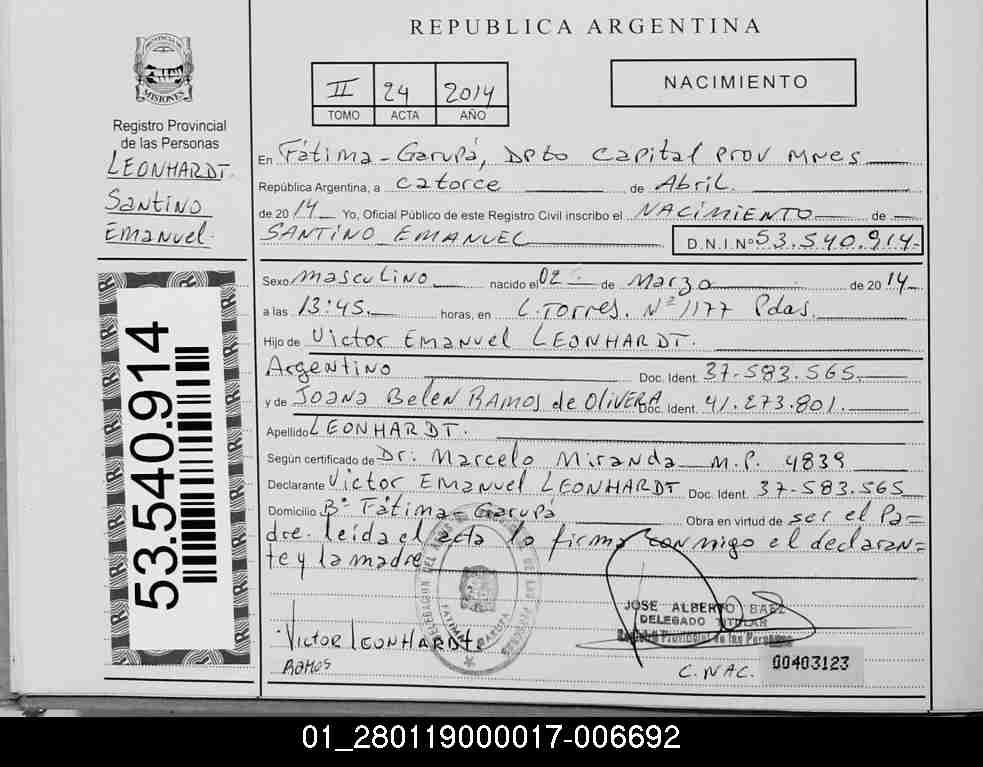 REPUBLICA ARGENTINA
PROVINCIA DE
MISIONES
Registro Provincial
de las Personas
LEONHARDT
Santino
Emanuel
II 24 2014
TOMO ACTA AÑO
NACIMIENTO
En Fátima-Garupá, Dpto Capital Prov Mnes
República Argentina, a catorce de Abril
de 2014 Yo, Oficial Público de este Registro Civil inscribo el NACIMIENTO de
SANTINO EMANUEL D.N.I.Nº 53.540.914-
53.540.914
Sexo masculino nacido el 02 de Marzo de 2014
a las 13:45. horas, en L. Torres. Nº 1177 Pdas.
Hijo de Victor Emanuel LEONHARDT.
Argentino Doc. Ident. 37-583.565.
y de Joana Belen RAMOS de OliVERA Doc. Ident. 41.273.801.
Apellido LEONHARDT.
Según certificado de Dr. Marcelo Miranda M.P. 4839
Declarante Victor Emanuel LEONHARDT Doc. Ident. 37-583.565
Domicilio Bº Fátima-Garupá Obra en virtud de ser el Pa=
dre. leída el acta lo firma conmigo el declaran=
te y la madre
JOSE ALBERTO BAEZ
DELEGADO TITULAR
Registro Provincial de las Personas
Victor LEONHARDT
RAMOS
C. NAC. 00403123
01_280119000017-006692